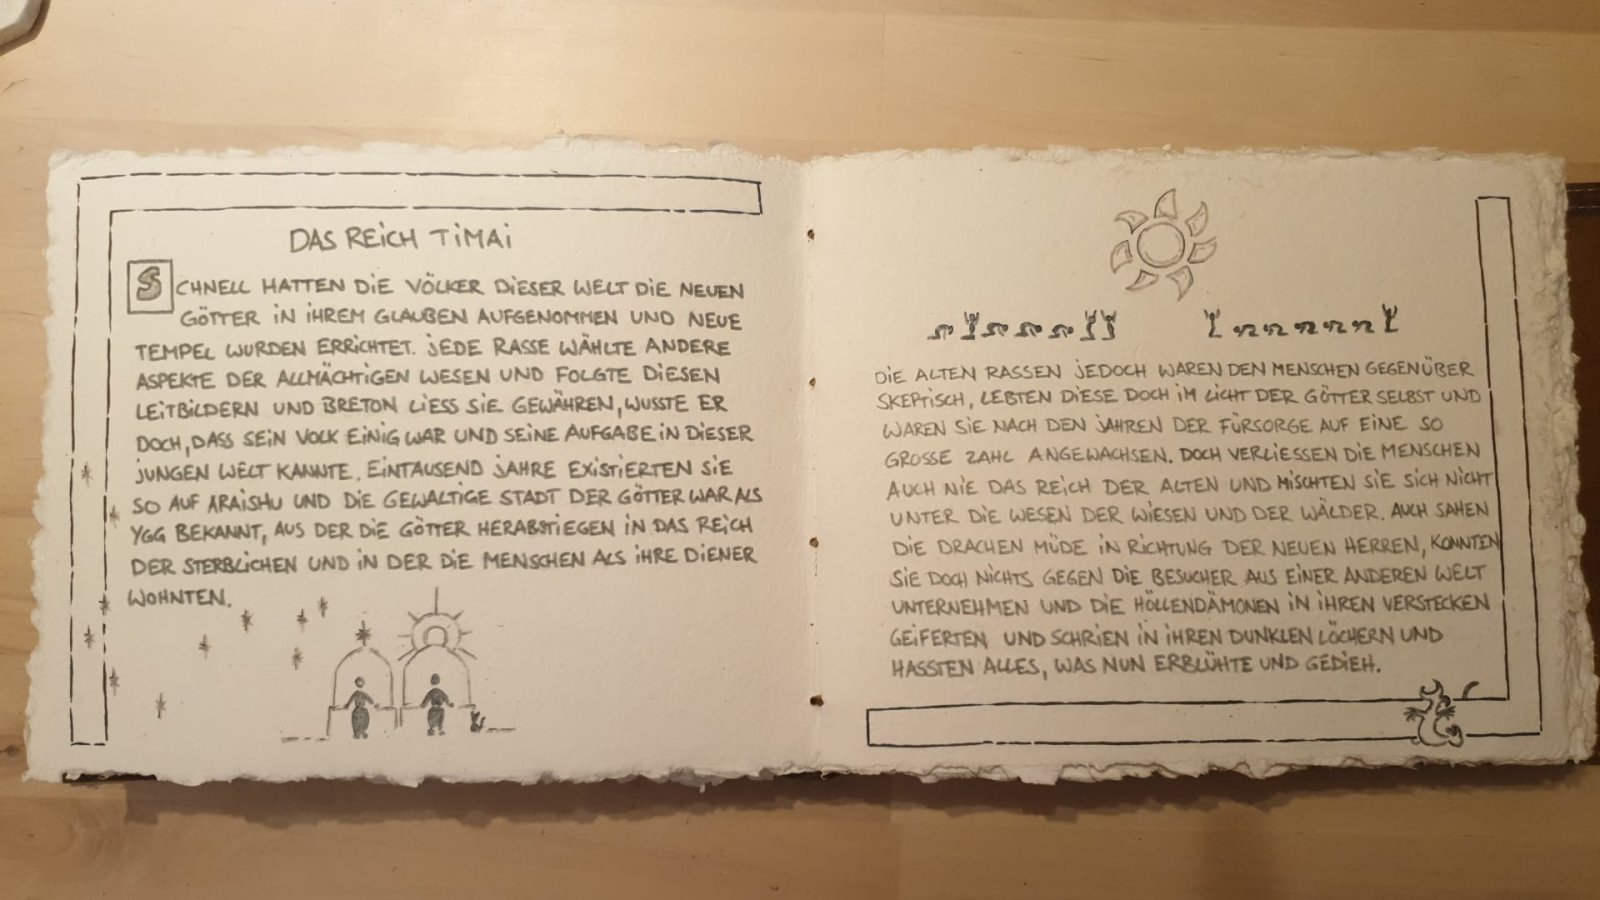 DAS REiCH TiMAi
SCHNELL HATTEN DiE VÖLKER DiESER WELT DiE NEUEN
GÖTTER iN iHREM GLAUBEN AUFGENOMMEN UND NEUE
TEMPEL WURDEN ERRiCHTET. jEDE RASSE WÄHLTE ANDERE
ASPEKTE DER ALLMÄCHTiGEN WESEN UND FOLGTE DiESEN
LEiTBiLDERN UND BRETON LiESS SiE GEWÄHREN, WUSSTE ER
DOCH, DASS SEiN VOLK EiNiG WAR UND SEiNE AUFGABE iN DiESER
jUNGEN WELT KANNTE. EiNTAUSEND jAHRE EXiSTiERTEN SiE
SO AUF ARAiSHU UND DiE GEWALTiGE STADT DER GÖTTER WAR ALS
YGG BEKANNT, AUS DER DiE GÖTTER HERABSTiEGEN iN DAS REiCH
DER STERBLiCHEN UND iN DER DiE MENSCHEN ALS iHRE DiENER
WOHNTEN.
DiE ALTEN RASSEN jEDOCH WAREN DEN MENSCHEN GEGENÜBER
SKEPTiSCH, LEBTEN DiESE DOCH iM LiCHT DER GÖTTER SELBST UND
WAREN SiE NACH DEN jAHREN DER FÜRSORGE AUF EiNE SO
GROSSE ZAHL ANGEWACHSEN. DOCH VERLiESSEN DiE MENSCHEN
AUCH NiE DAS REiCH DER ALTEN UND MiSCHTEN SiE SiCH NiCHT
UNTER DiE WESEN DER WiESEN UND DER WÄLDER. AUCH SAHEN
DiE DRACHEN MÜDE iN RiCHTUNG DER NEUEN HERREN, KONNTEN
SiE DOCH NiCHTS GEGEN DiE BESUCHER AUS EiNER ANDEREN WELT
UNTERNEHMEN UND DiE HÖLLENDÄMONEN iN iHREN VERSTECKEN
GEiFERTEN UND SCHRiEN iN iHREN DUNKLEN LÖCHERN UND
HASSTEN ALLES, WAS NUN ERBLÜHTE UND GEDiEH.